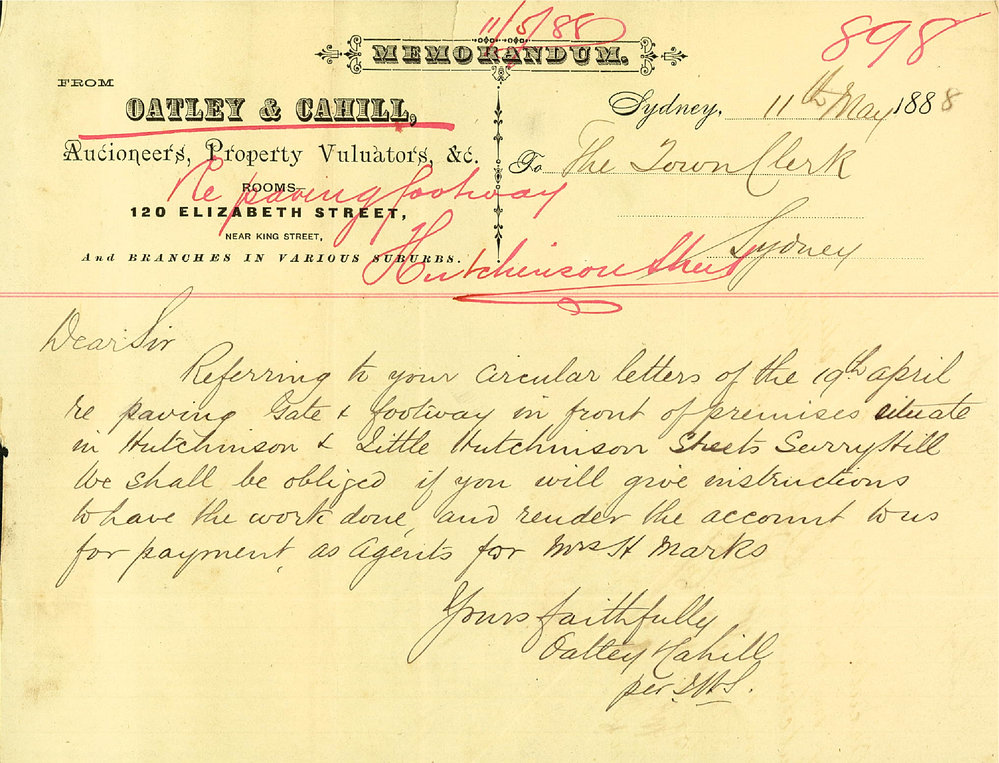 11/5/88
898
MEMORANDUM.
FROM
OATLEY & CAHILL,
Sydney, 11th May 1888
Aucioneers, Property Vuluators, &c.
To The Town Clerk
ROOMS
Re paving footway
120 ELIZABETH STREET,
NEAR KING STREET,
Sydney
And BRANCHES IN VARIOUS SUBURBS.
Hutchinson Street
Dear Sir
Referring to your circular letters of the 19th april
re paving Gate & footway in front of premises situate
in Hutchinson & Little Hutchinson Streets Surry Hill
We shall be obliged if you will give instructions
to have the work done, and render the account to us
for payment, as Agents for Mrs H Marks
Yours faithfully
Oatley Cahill
per